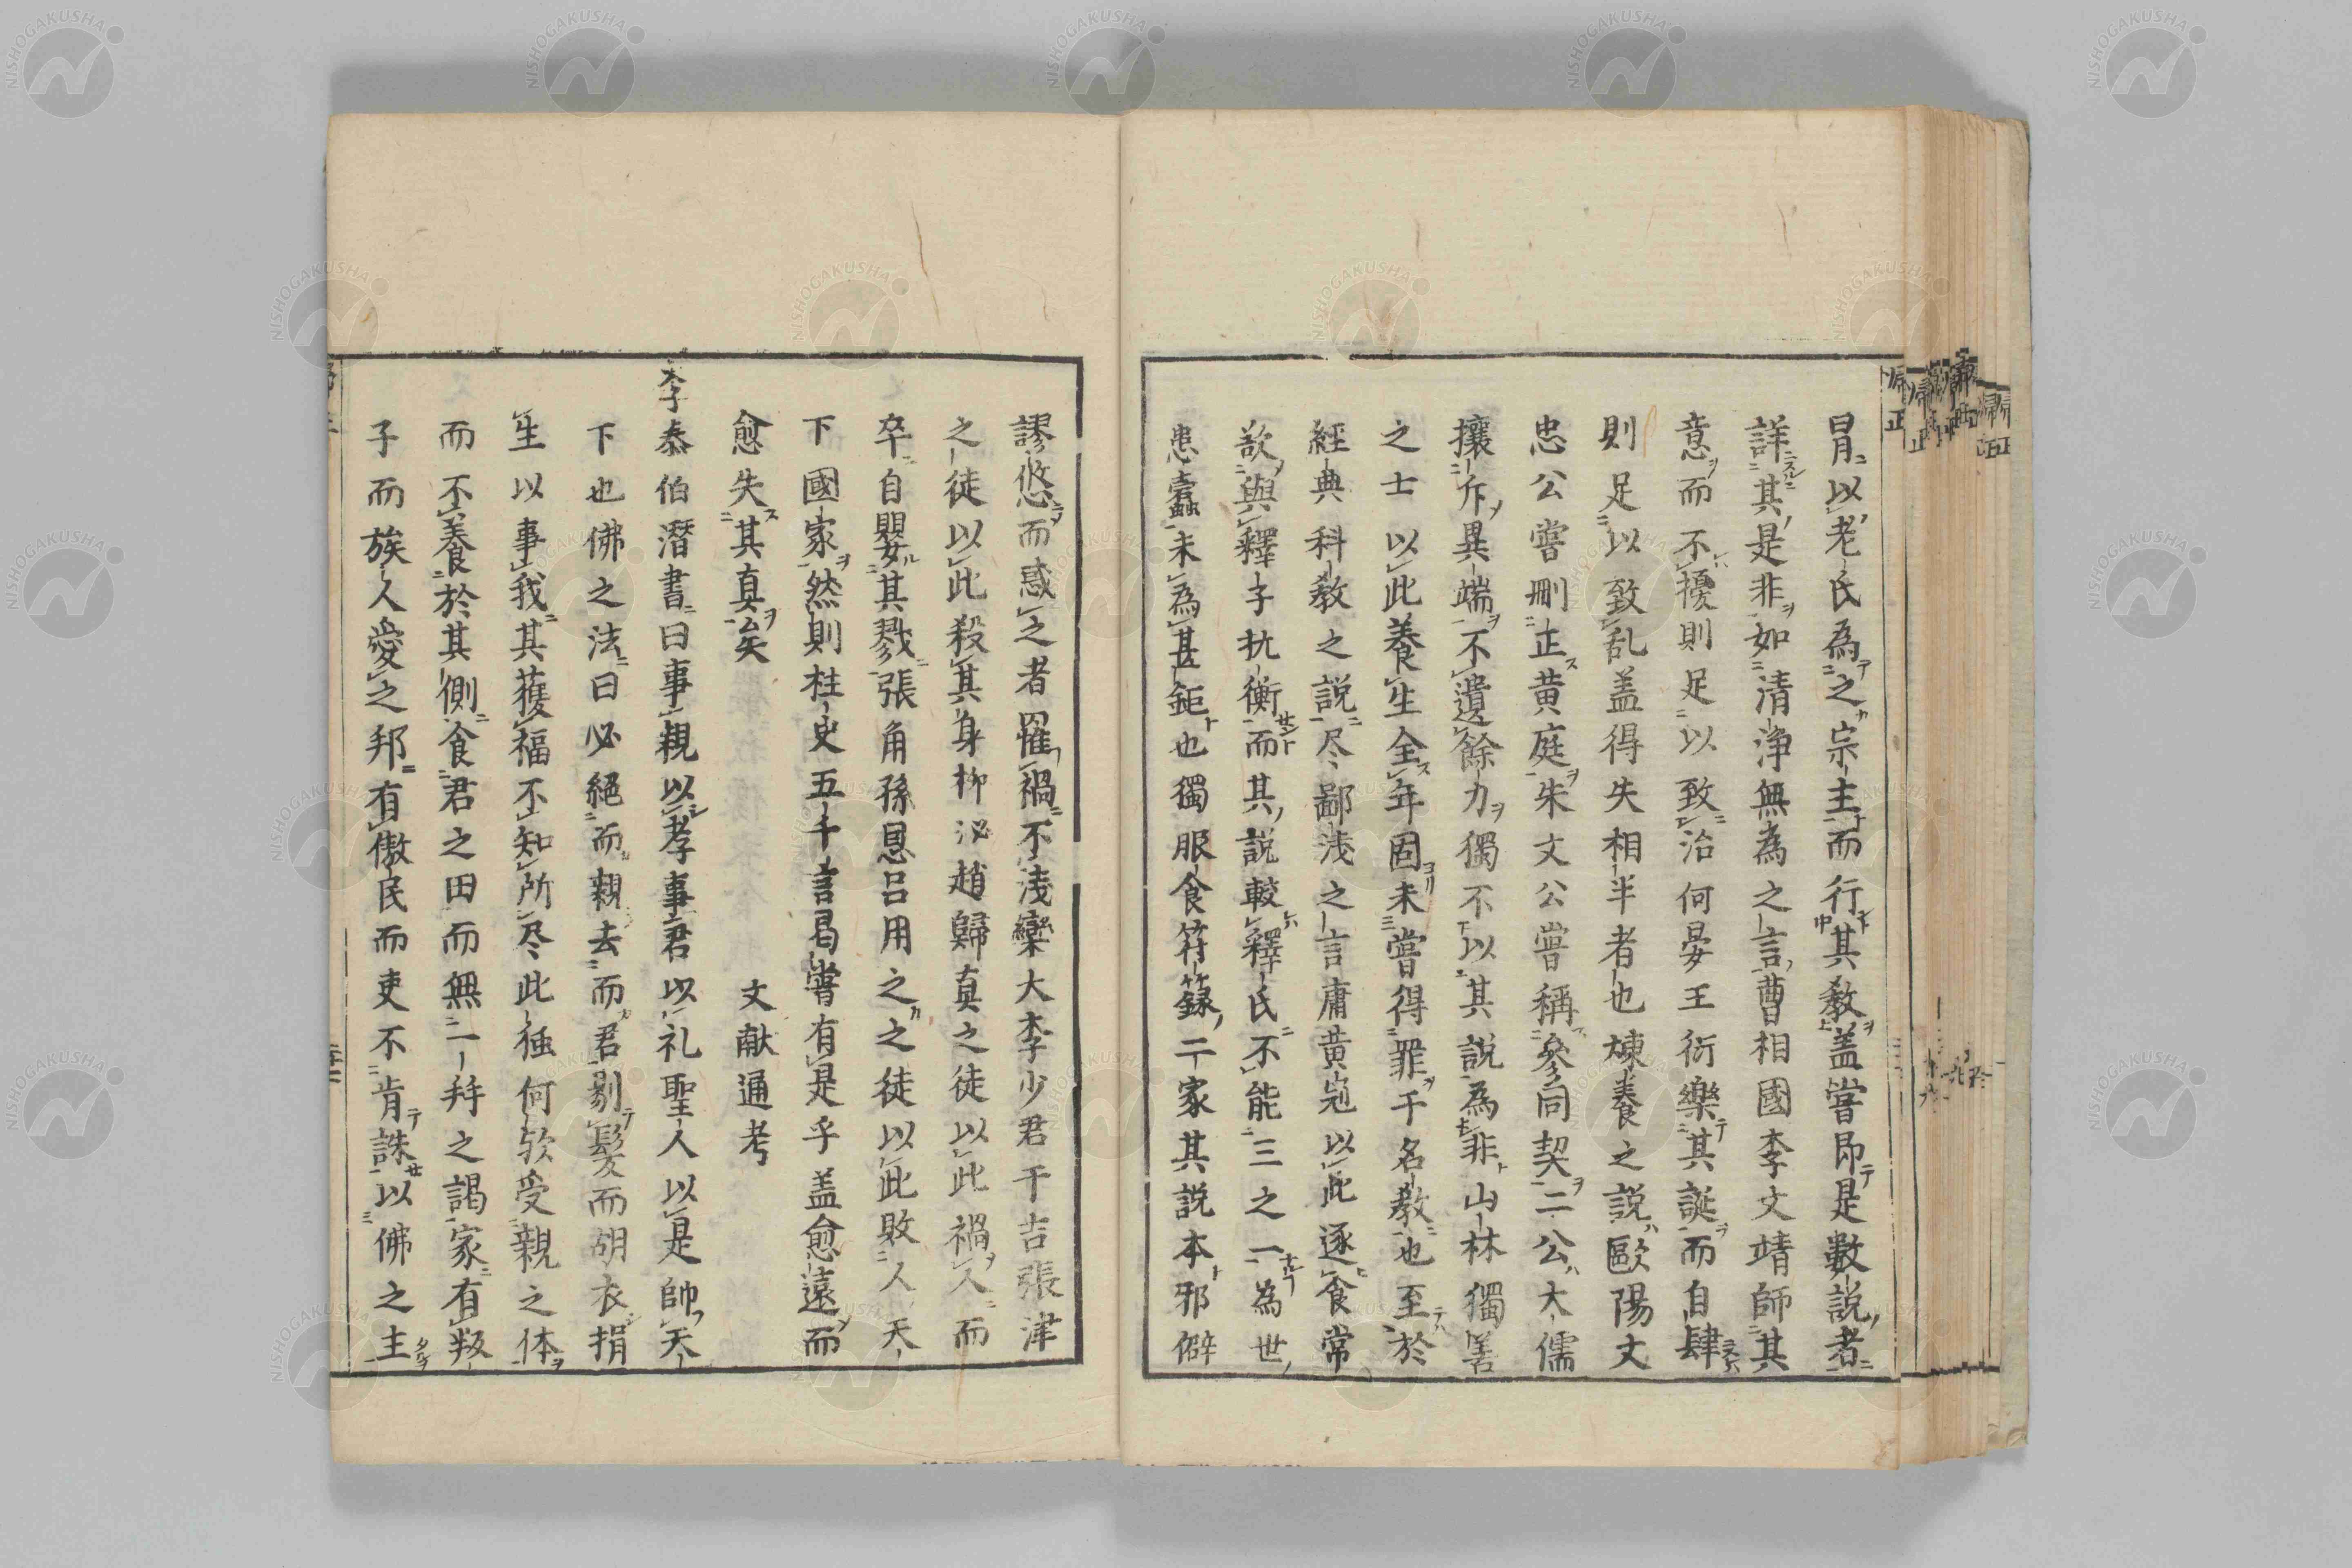 冐以老氏為之宗主而行其教盖嘗即是數説者
詳其是非如清浄無為之言曹相國李文靖師其
意而不擾則足以致治何晏王衍樂其誕而自肆
則足以致乱盖得失相半者也煉養之説歐陽文
忠公嘗刪正黄庭朱文公嘗稱參同契二公大儒
攘斥異端不遺餘力獨不以其説為非山林獨善
之士以此養生全年固未嘗得罪于名教也至於
經典科教之説尽鄙浅之言庸黄冠以此逐食常
欲與釋子抗衡而其説較釋氏不能三之一為世
患蠹未為甚鉅也獨服食符籙二家其説本邪僻
謬悠而惑之者罹禍不浅欒大李少君于吉張津
之徒以此殺其身柳泌趙歸真之徒以此禍人而
卒自嬰其戮張角孫恩吕用之之徒以此敗人天
下國家然則柱史五千言曷嘗有是乎盖愈遠而
愈失其真矣 文献通考
李泰伯潛書曰事親以孝事君以礼聖人以是帥天
下也佛之法曰必絕而親去而君剔髮而胡衣捐
生以事我其獲福不知所尽此極何欤受親之体
而不養於其側食君之田而無一拜之謁家有叛
子而族人愛之邦有傲民而吏不肯誅以佛之主